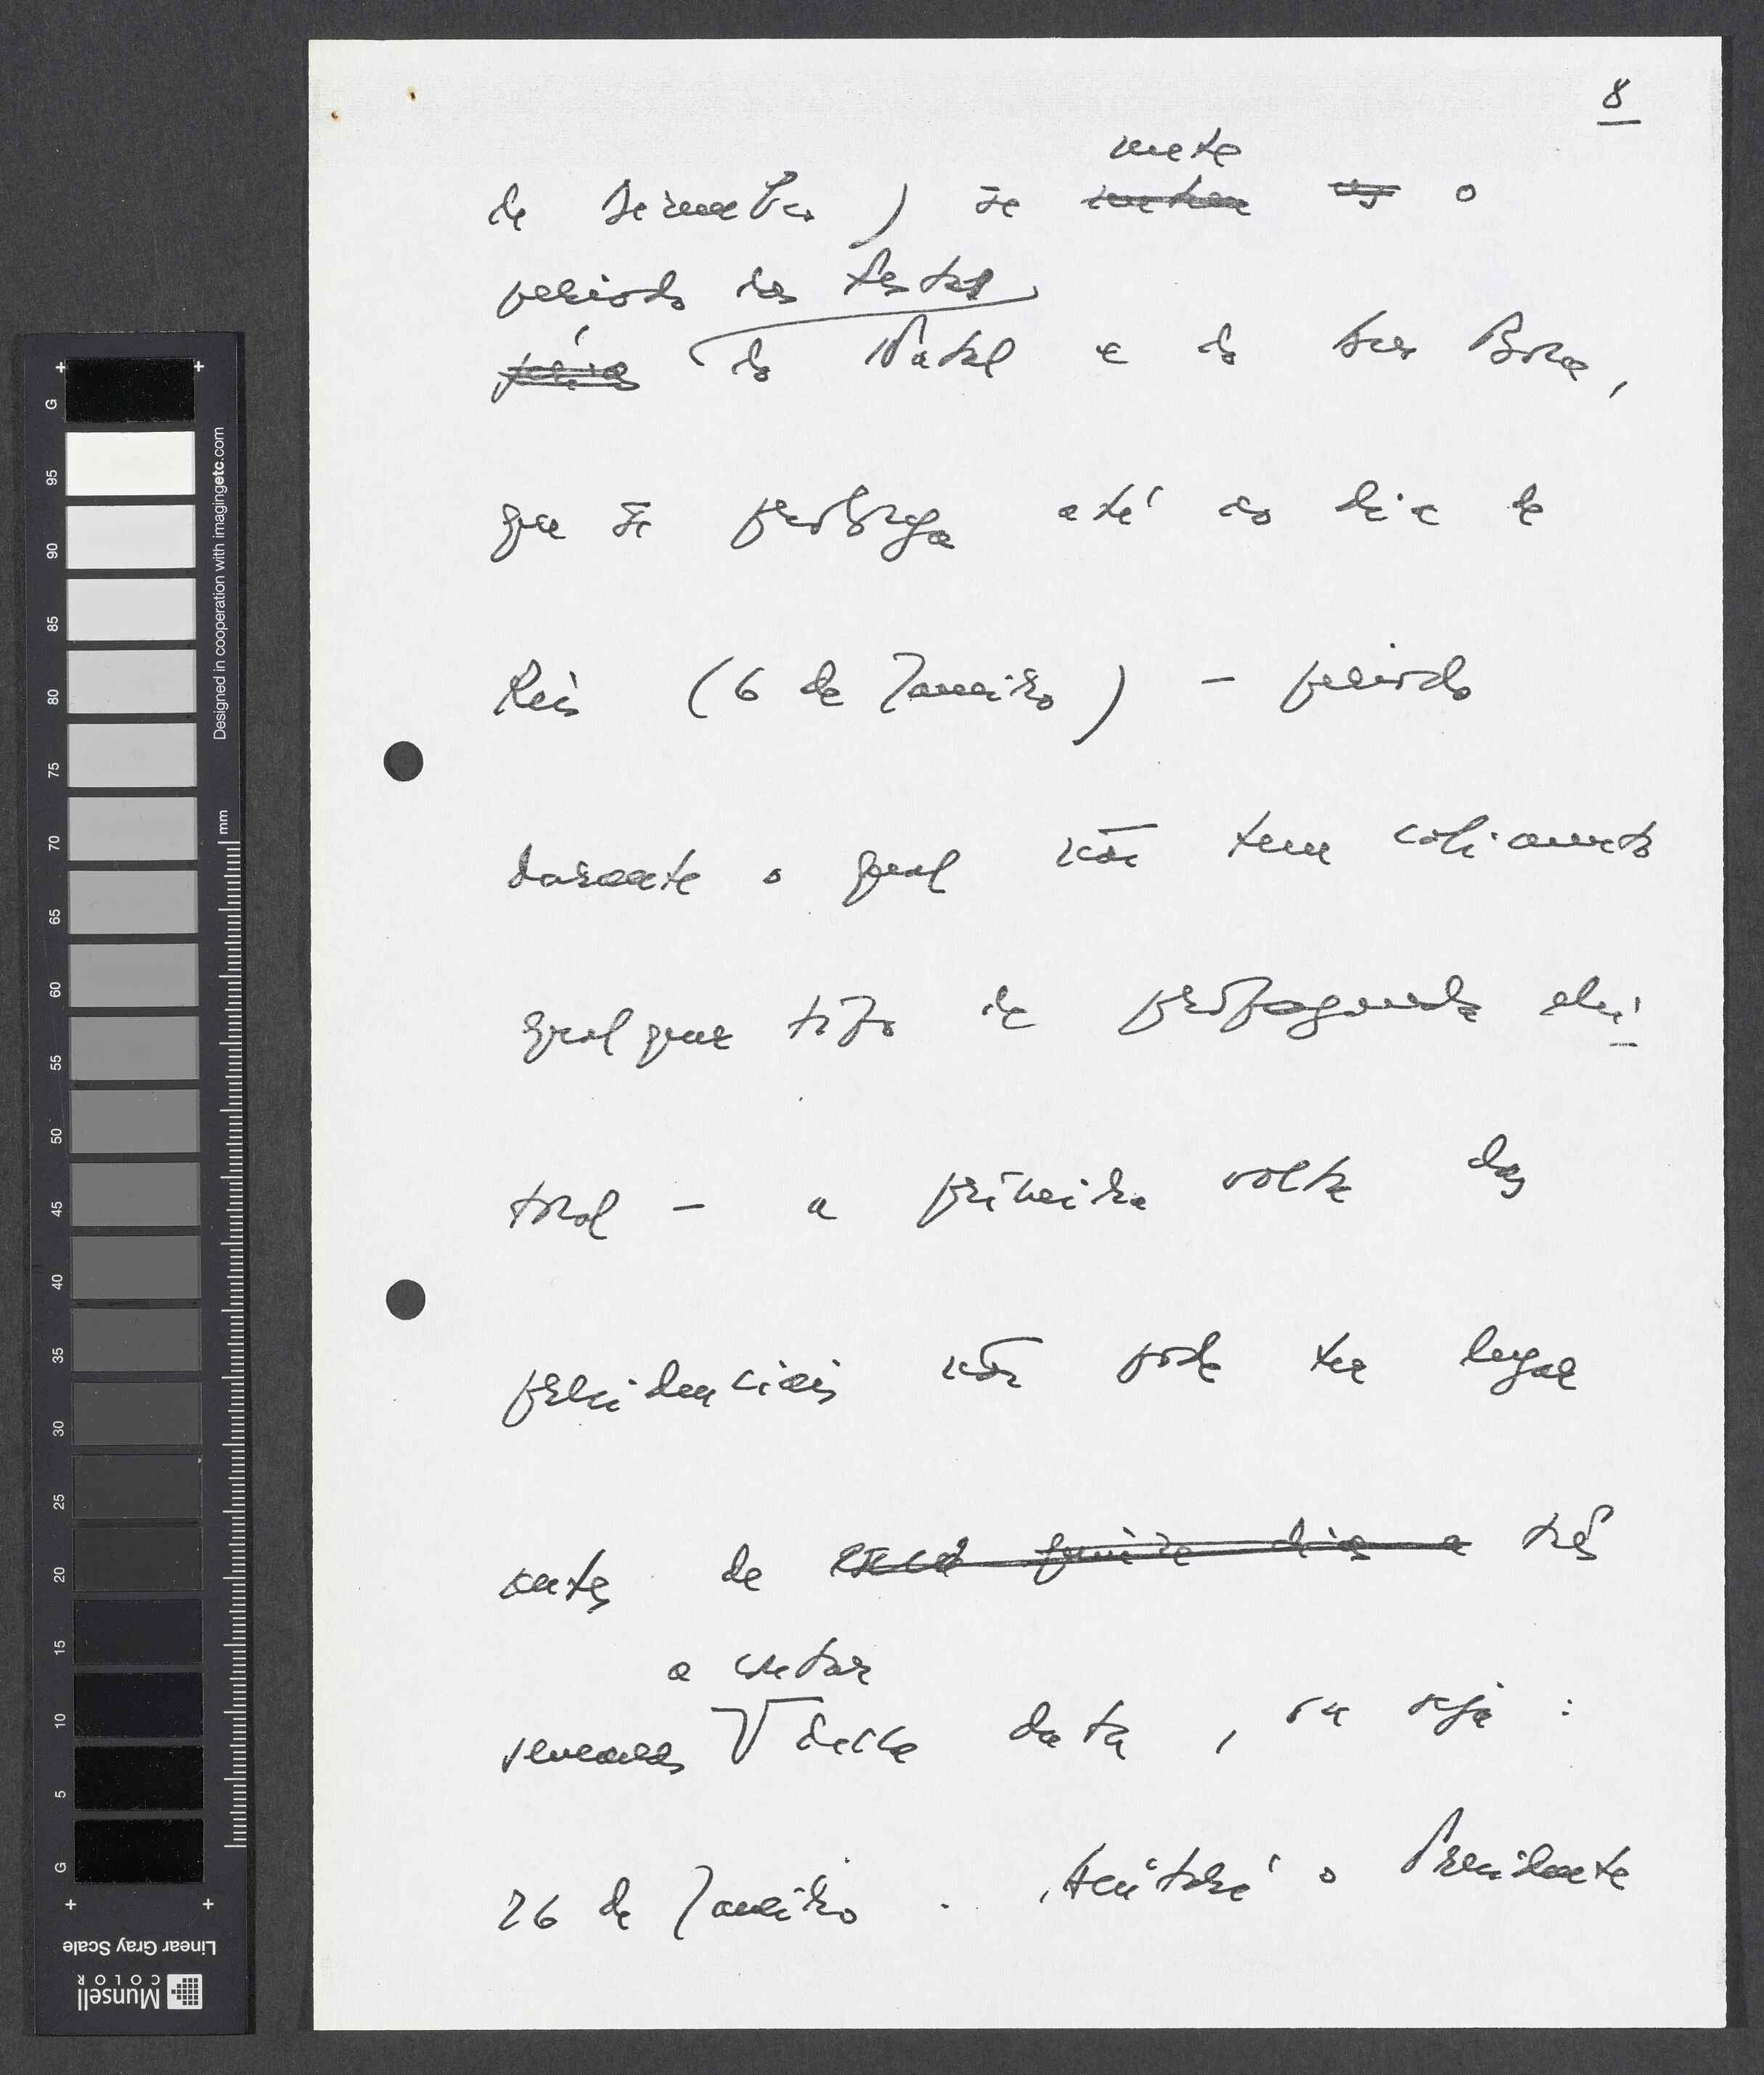 8
mete
de Dezembro) se metem as o
período das festas
férias do Natal e do Ano Bom,
que se prolonga até ao dia de
Reis (6 de Janeiro) - período
durante o qual não tem cabimento
qualquer tipo de propaganda elei
toral - a primeira volta das
presidenciais não pode ter lugar
antes de quinze dias a três
a contar
semanas desta data, ou seja:
26 de Janeiro. o Presidente
G
95
90
85
80
75
70
65
60
55
50
45
40
35
30
25
20
15
10
5
G
mm
Designed in cooperation with imagingetc.com
Linear Gray Scale
Munsell
COLOR